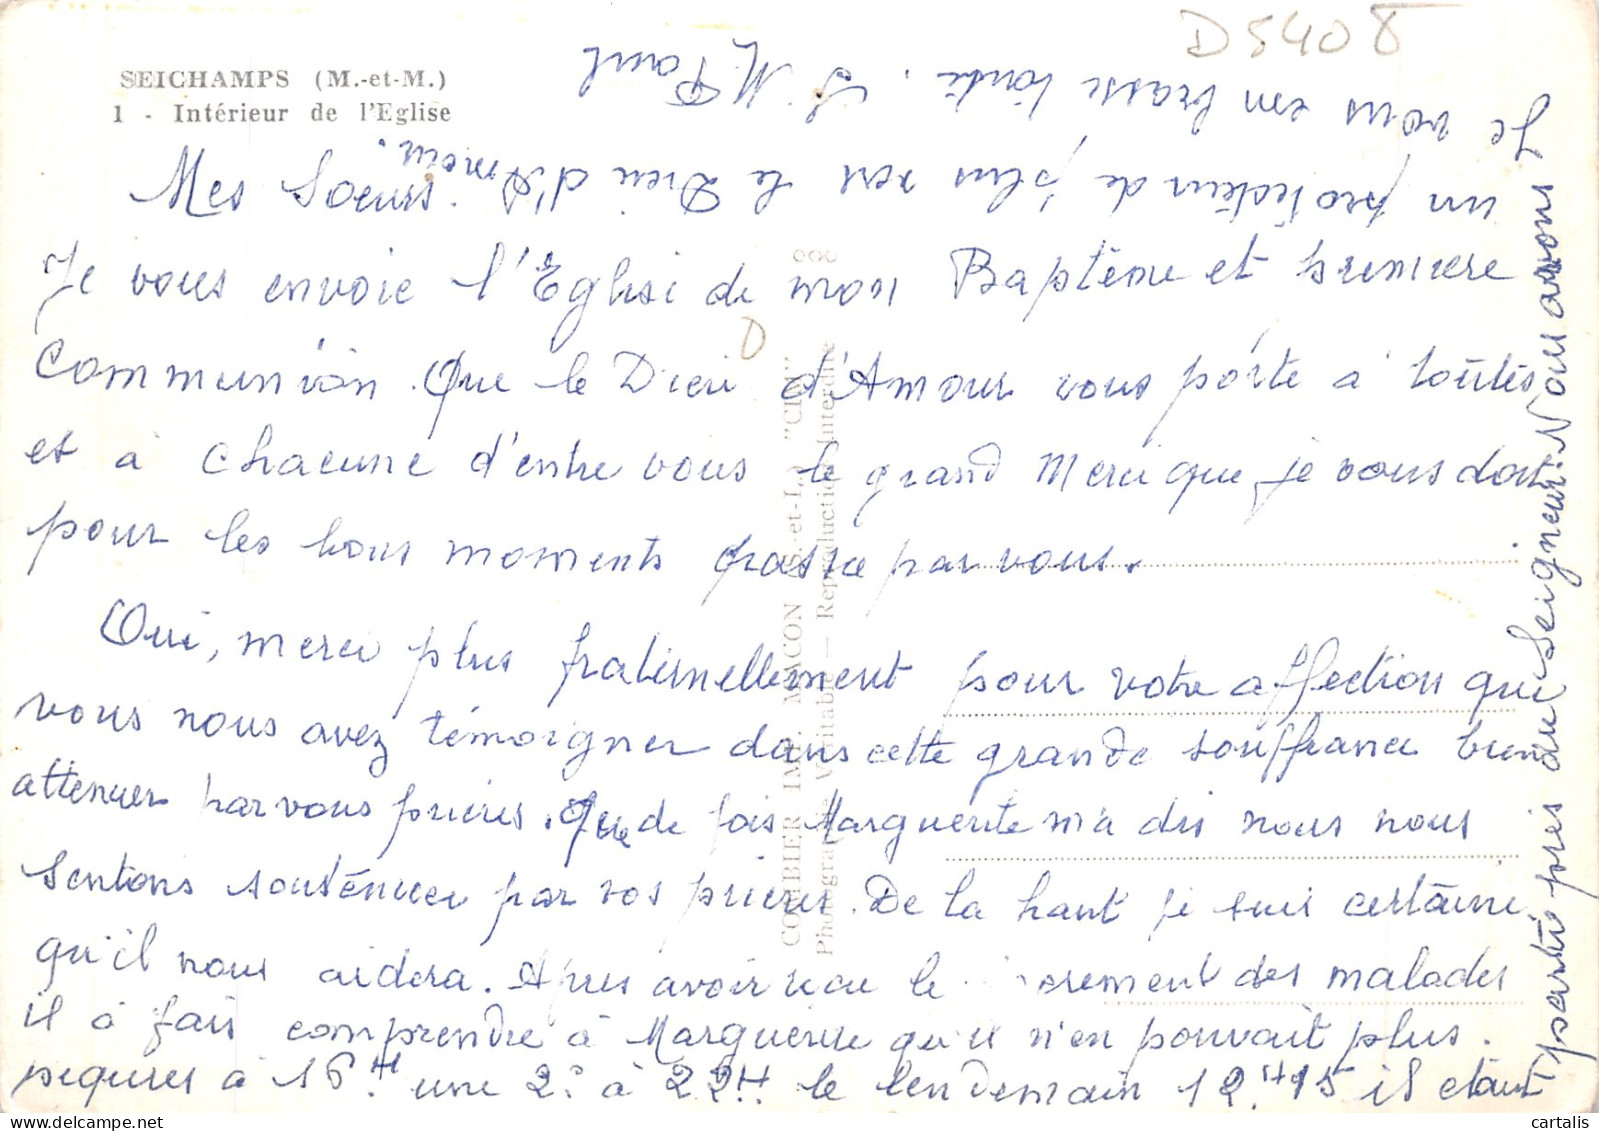 D5408
SEICHAMPS (M.-et-M.)
1 - Intérieur de l'Eglise
Mes Soeurs.
Je vous envoie l'Eglise de mon Baptême et première
Communion. Que le Dieu d'Amour vous porte à toutes
et à chacune d'entre vous le grand Merci que je vous dois
pour les bons moments passée par vous.
Oui, merci plus fraternellement pour votre affection que
vous nous avez témoigner dans cette grande souffrance bien
attenuer par vous prières. Que de fois Marguerite m'a dis nous nous
sentons soutenuer par vos prières. De la haut je suis certaine
qu'il nous aidera. Apres avoir reçu le des malades
il à fais comprendre à Marguerite qu'il n'en pouvait plus.
piqures à 16H une 2° à 22H le lendemain 12H15 il était
partie près du Seigneur. Nous avons
un protecteur de plus vers le Dieu d'Amour.
Je vous embrasse toute. S. M. Paul
D
COMBIER IMP. MACON (S.-et-L.) "CIM"
Photographie Véritable — Reproduction Interdite